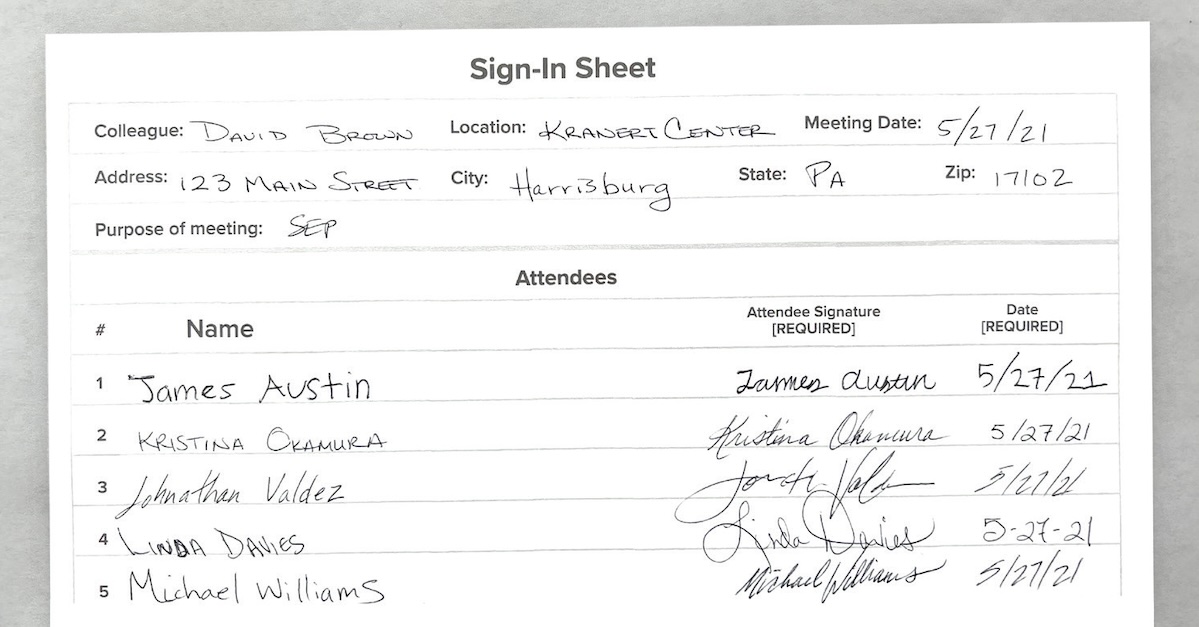 Sign-In Sheet
Colleague: DAVID BROWN Location: KRANERT CENTER Meeting Date: 5/27/21
Address: 123 MAIN STREET City: Harrisburg State: PA Zip: 17102
Purpose of meeting: SEP
Attendees
# Name Attendee Signature [REQUIRED] Date [REQUIRED]
1 James Austin James Austin 5/27/21
2 KRISTINA OKAMURA Kristina Okamura 5/27/21
3 Johnathan Valdez 5/27/21
4 LINDA DAVIES Linda Davies 5-27-21
5 Michael Williams Michael Williams 5/27/21